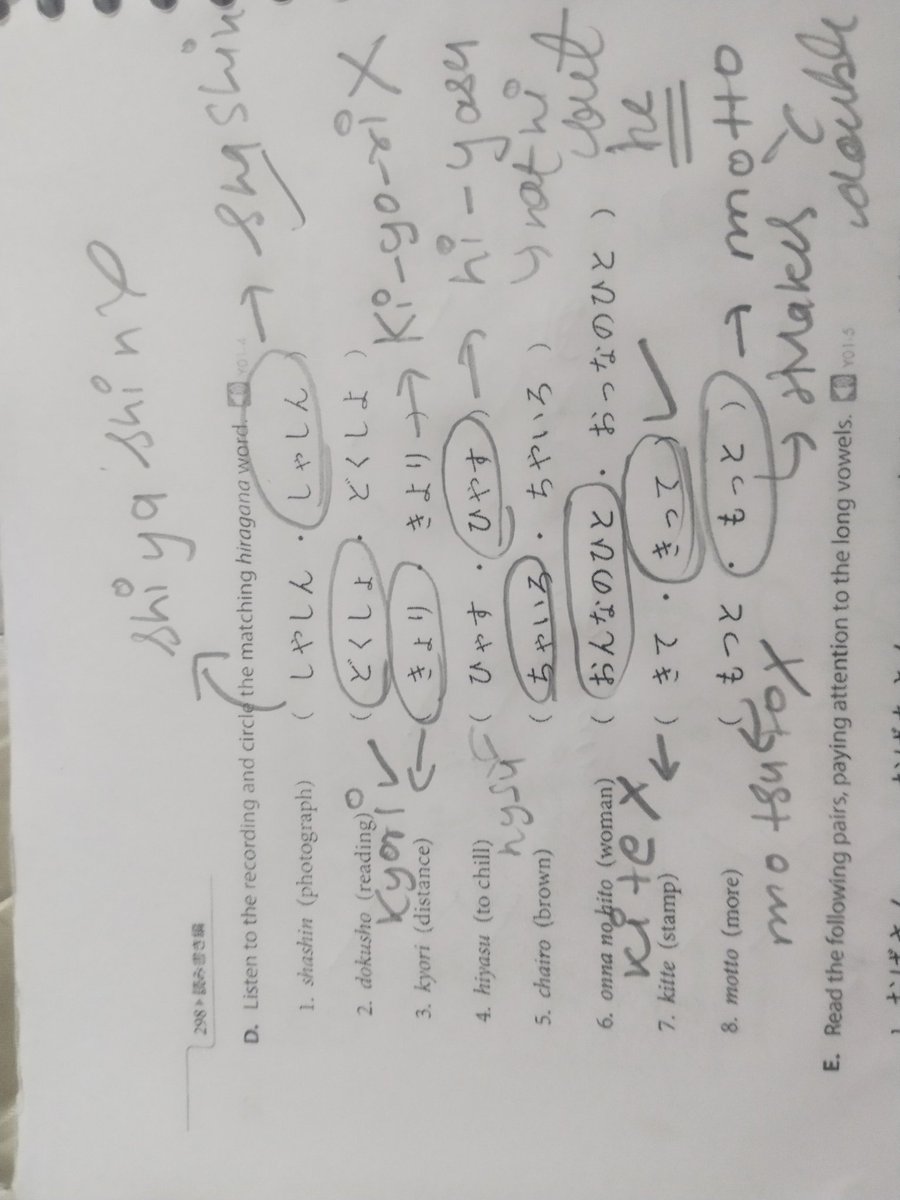 298 ▶ 読み書き編
shi ya shin x
D. Listen to the recording and circle the matching hiragana word. Y01-4
1. shashin (photograph) ( しやしん ・ しゃしん ) →
2. dokusho (reading) ( どくしょ ・ どくしよ )
kyori ✓
3. kyori (distance) ( きょり ・ きより ) → Ki-yo-ri X
4. hiyasu (to chill) ( ひゃす ・ ひやす ) → hi-yasu
5. chairo (brown) ( ちゃいろ ・ ちやいろ ) y not hi
6. onna no hito (woman) ( おんなのひと ・ おっなのひと )
ki te X ←
7. kitte (stamp) ( きて ・ きって ) ✓
8. motto (more) ( もつと ・ もっと ) → motto
mo tsu to X
makes double
E. Read the following pairs, paying attention to the long vowels. Y01-5